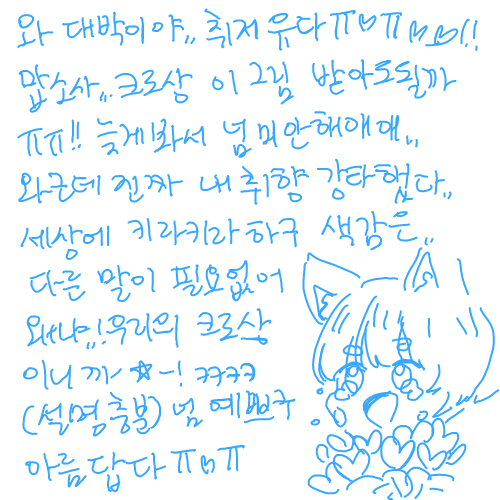 와 대박이야,, 취저 유다ㅠ♡ㅠ ㅁ스ㅁ!!
맙소사,,,크로상 이 그림 받아도될까
ㅠㅠ!! 늦게봐서 넘 미안해애애,,
와근데 진짜 내 취향 강타했다,,
세상에 키라키라 하구 색감은,,
다른 말이 필요없어
왜냐,,!우리의 크로상
이니까~☆~! ㅋㅋㅋㅋ
(설명충불) 넘 예쁘구
아름답다ㅠㅁㅠ